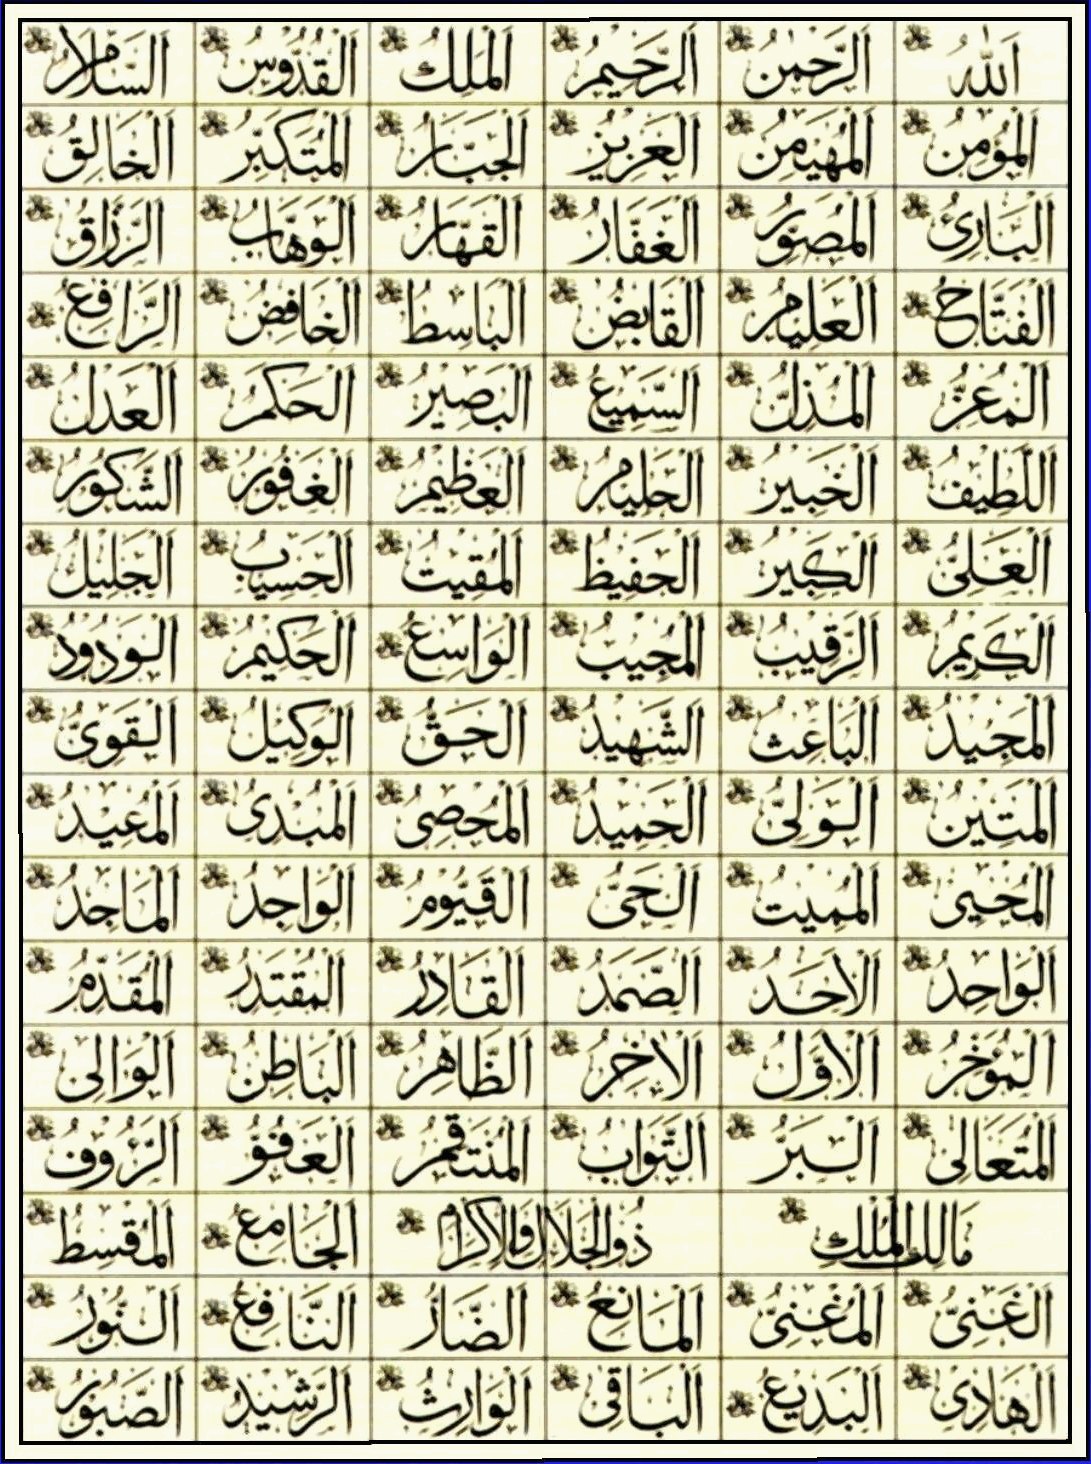 اَللّٰهُ اَلرَّحْمٰنُ اَلرَّحِيْمُ اَلْمَلِكُ اَلْقُدُّوْسُ اَلسَّلَامُ
اَلْمُؤْمِنُ اَلْمُهَيْمِنُ اَلْعَزِيْزُ اَلْجَبَّارُ اَلْمُتَكَبِّرُ اَلْخَالِقُ
اَلْبَارِئُ اَلْمُصَوِّرُ اَلْغَفَّارُ اَلْقَهَّارُ اَلْوَهَّابُ اَلرَّزَّاقُ
اَلْفَتَّاحُ اَلْعَلِيْمُ اَلْقَابِضُ اَلْبَاسِطُ اَلْخَافِضُ اَلرَّافِعُ
اَلْمُعِزُّ اَلْمُذِلُّ اَلسَّمِيْعُ اَلْبَصِيْرُ اَلْحَكَمُ اَلْعَدْلُ
اَللَّطِيْفُ اَلْخَبِيْرُ اَلْحَلِيْمُ اَلْعَظِيْمُ اَلْغَفُوْرُ اَلشَّكُوْرُ
اَلْعَلِىُّ اَلْكَبِيْرُ اَلْحَفِيْظُ اَلْمُقِيْتُ اَلْحَسِيْبُ اَلْجَلِيْلُ
اَلْكَرِيْمُ اَلرَّقِيْبُ اَلْمُجِيْبُ اَلْوَاسِعُ اَلْحَكِيْمُ اَلْوَدُوْدُ
اَلْمَجِيْدُ اَلْبَاعِثُ اَلشَّهِيْدُ اَلْحَقُّ اَلْوَكِيْلُ اَلْقَوِىُّ
اَلْمَتِيْنُ اَلْوَلِىُّ اَلْحَمِيْدُ اَلْمُحْصِى اَلْمُبْدِئُ اَلْمُعِيْدُ
اَلْمُحْيِىْ اَلْمُمِيْتُ اَلْحَىُّ اَلْقَيُّوْمُ اَلْوَاجِدُ اَلْمَاجِدُ
اَلْوَاحِدُ اَلْاَحَدُ اَلصَّمَدُ اَلْقَادِرُ اَلْمُقْتَدِرُ اَلْمُقَدِّمُ
اَلْمُؤَخِّرُ اَلْاَوَّلُ اَلْاٰخِرُ اَلظَّاهِرُ اَلْبَاطِنُ اَلْوَالِى
اَلْمُتَعَالِى اَلْبَرُّ اَلتَّوَّابُ اَلْمُنْتَقِمُ اَلْعَفُوُّ اَلرَّءُوْفُ
مَالِكُ الْمُلْكِ ذُوالْجَلَالِ وَالْاِكْرَامِ اَلْجَامِعُ اَلْمُقْسِطُ
اَلْغَنِىُّ اَلْمُغْنِىُّ اَلْمَانِعُ اَلضَّارُّ اَلنَّافِعُ اَلنُّوْرُ
اَلْهَادِىْ اَلْبَدِيْعُ اَلْبَاقِى اَلْوَارِثُ اَلرَّشِيْدُ اَلصَّبُوْرُ